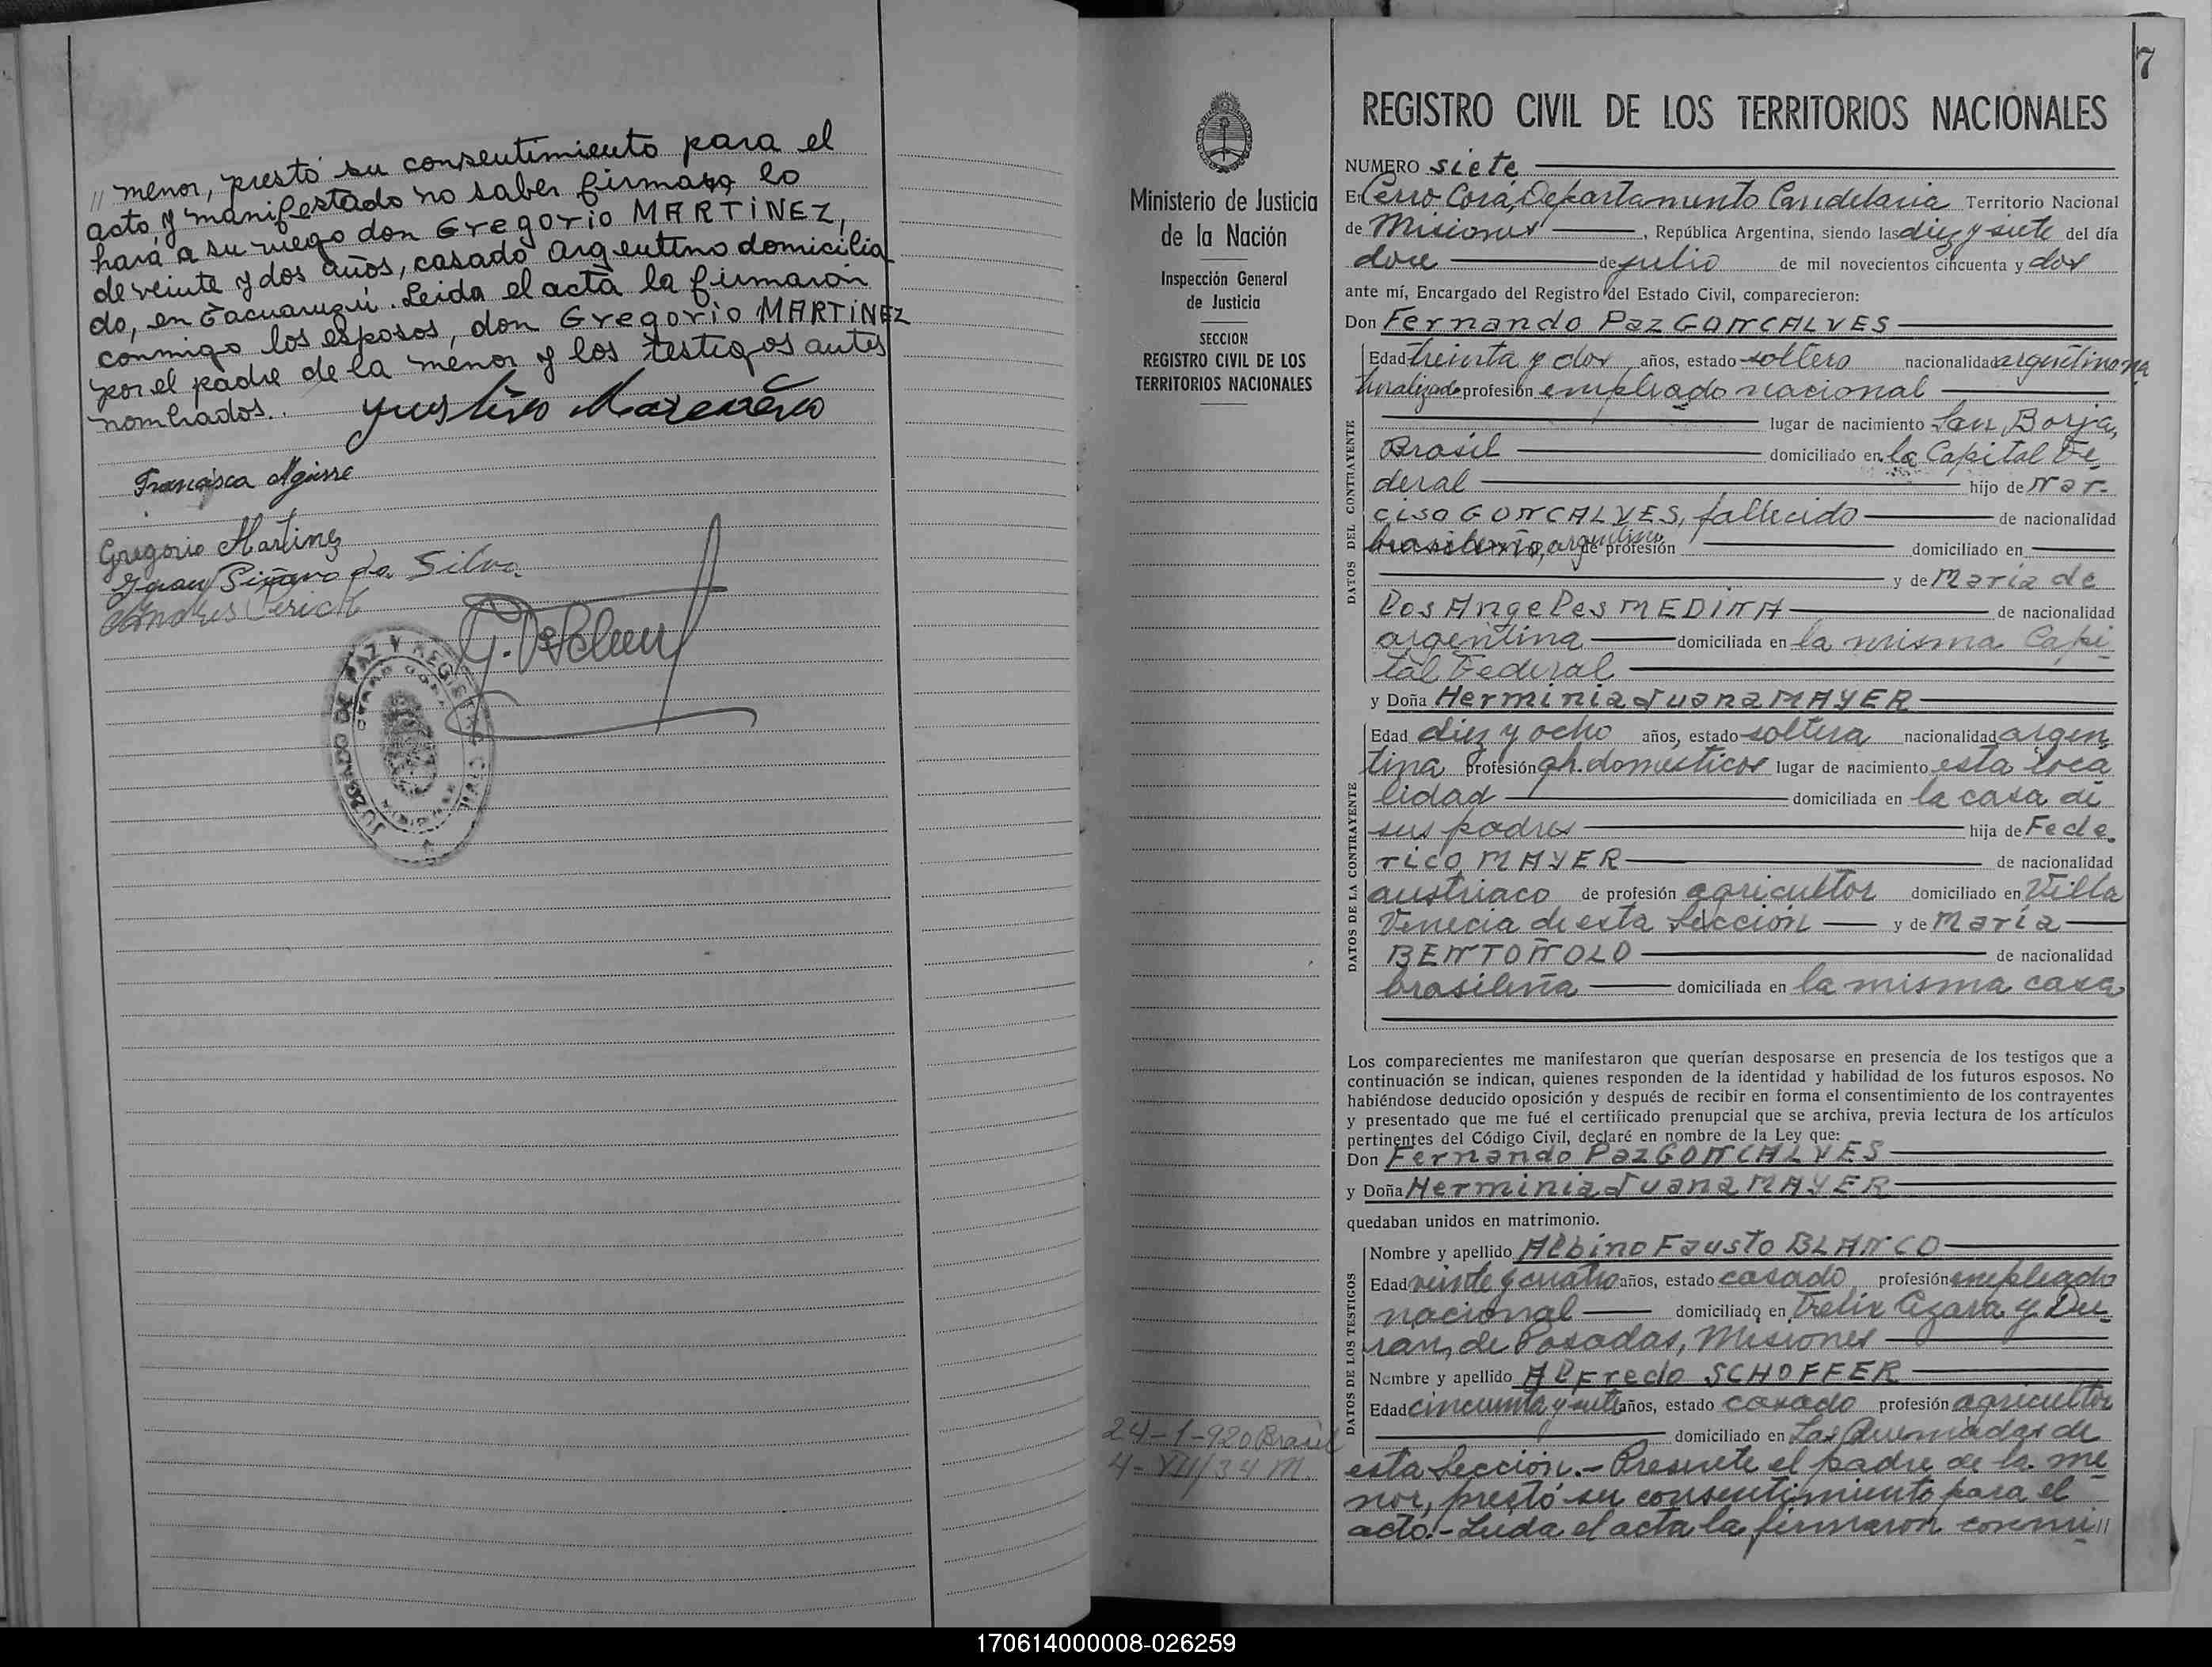 " menor, prestó su consentimiento para el
acto y manifestado no saber firmar, lo
hará a su ruego don Gregorio MARTINEZ,
de veinte y dos años, casado argentino domicilia
do, en Tacuaruzú. Leida el acta la firmaron
conmigo los esposos, don Gregorio MARTINEZ
por el padre de la menor y los testigos antes
nombrados.
Francisca Aguirre
Gregorio Martinez
da Silva
JUZGADO DE PAZ Y REGISTRO CIVIL
7
REGISTRO CIVIL DE LOS TERRITORIOS NACIONALES
Ministerio de Justicia
de la Nación
Inspección General
de Justicia
SECCION
REGISTRO CIVIL DE LOS
TERRITORIOS NACIONALES
NUMERO siete
En Cerro Corá, Departamento Candelaria Territorio Nacional
de Misiones, República Argentina, siendo las diez y siete del día
doce de julio de mil novecientos cincuenta y dos
ante mí, Encargado del Registro del Estado Civil, comparecieron:
Don Fernando Paz GONCALVES
DATOS DEL CONTRAYENTE
Edad treinta y dos años, estado soltero nacionalidad argentino na
turalizado profesión empleado nacional
lugar de nacimiento San Borja,
Brasil domiciliado en la Capital Fe
deral hijo de Nar-
ciso GONCALVES, fallecido de nacionalidad
brasileño, argentino, de profesión domiciliado en
y de María de
Los Angeles MEDINA de nacionalidad
argentina domiciliada en la misma Capi-
tal Federal
y Doña Herminia Juana MAYER
DATOS DE LA CONTRAYENTE
Edad diez y ocho años, estado soltera nacionalidad argen
tina profesión qh. domésticos lugar de nacimiento esta loca
lidad domiciliada en la casa de
sus padres hija de Fede
rico MAYER de nacionalidad
austriaco de profesión agricultor domiciliado en Villa
Venecia de esta Sección y de María
BENTOÑOLO de nacionalidad
brasileña domiciliada en la misma casa
Los comparecientes me manifestaron que querían desposarse en presencia de los testigos que a
continuación se indican, quienes responden de la identidad y habilidad de los futuros esposos. No
habiéndose deducido oposición y después de recibir en forma el consentimiento de los contrayentes
y presentado que me fué el certificado prenupcial que se archiva, previa lectura de los artículos
pertinentes del Código Civil, declaré en nombre de la Ley que:
Don Fernando Paz GONCALVES
y Doña Herminia Juana MAYER
quedaban unidos en matrimonio.
DATOS DE LOS TESTIGOS
Nombre y apellido Albino Fausto BLANCO
Edad veinte y cuatro años, estado casado profesión empleado
nacional domiciliado en Felix Azara y Du-
ran, de Posadas, Misiones
Nombre y apellido Alfredo SCHOFFER
Edad cincuenta y siete años, estado casado profesión agricultor
domiciliado en Las Quemadas de
esta Sección.- Presente el padre de la me
nor, prestó su consentimiento para el
acto.- Leida el acta la firmaron conmi"
24-1-920 Brasil
4-VII/34 M.
170614000008-026259